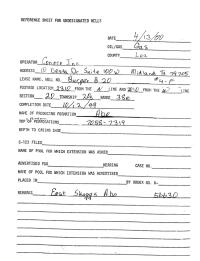 REFERENCE SHEET FOR UNDESIGNATED WELLS
DATE 4/13/00
OIL/GAS Gas
COUNTY Lea
OPERATOR Conoco Inc.
ADDRESS 10 Desta Dr. Suite 100W Midland Tx 79705
LEASE NAME, WELL NO. 20 #4-F
FOOTAGE LOCATION FROM THE N LINE AND FROM THE LINE
SECTION 20 TOWNSHIP RANGE 38e
COMPLETION DATE 10/12/99
NAME OF PRODUCING FORMATION Abo
TOP OF PERFORATIONS 7055-7319
DEPTH TO CASING SHOE
C-123 FILED
NAME OF POOL FOR WHICH EXTENSION WAS ASKED
ADVERTISED FOR HEARING CASE NO.
NAME OF POOL FOR WHICH EXTENSION WAS ADVERTISED
PLACED IN BY ORDER NO. R-
REMARKS East Skaggs Abo 56630